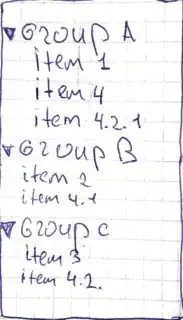 ▼ Group A
item 1
item 4
item 4.2.1
▼ Group B
item 2
item 4.1
▼ Group c
item 3
item 4.2.